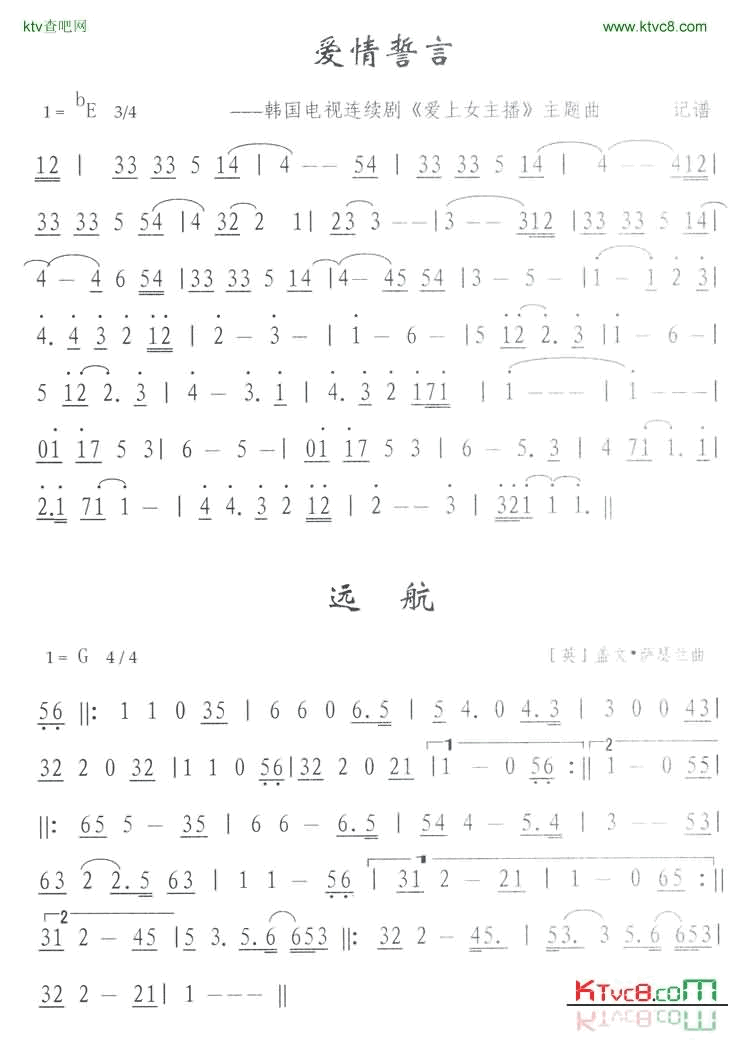 ktv查吧网
www.ktvc8.com
爱情誓言
1= bE 3/4 ——韩国电视连续剧《爱上女主播》主题曲 记谱
12 | 33 33 5 14 | 4 -- 54 | 33 33 5 14 | 4 -- 412 |
33 33 5 54 | 4 32 2 1 | 23 3 -- | 3 -- 312 | 33 33 5 14 |
4 - 4 6 54 | 33 33 5 14 | 4 - 45 54 | 3 - 5 - | 1 - 1 2 3 |
4. 4 3 2 12 | 2 - 3 - | 1 - 6 - | 5 12 2. 3 | 1 - 6 - |
5 12 2. 3 | 4 - 3. 1 | 4. 3 2 171 | 1 --- | 1 --- |
01 17 5 3 | 6 - 5 - | 01 17 5 3 | 6 - 5. 3 | 4 71 1. 1 |
2.1 71 1 - | 4 4. 3 2 12 | 2 -- 3 | 321 1 1. ||
远 航
1= G 4/4 [英]盖文·萨瑟兰曲
56 ||: 1 1 0 35 | 6 6 0 6.5 | 5 4. 0 4.3 | 3 0 0 43 |
32 2 0 32 | 1 1 0 56 | 32 2 0 21 | 1 1 - 0 56 :|| 2 1 - 0 55 |
||: 65 5 - 35 | 6 6 - 6.5 | 54 4 - 5.4 | 3 -- 53 |
63 2 2.5 63 | 1 1 - 56 | 1 31 2 - 21 | 1 - 0 65 :||
2 31 2 - 45 | 5 3. 5.6 653 ||: 32 2 - 45. | 53. 3 5.6 653 |
32 2 - 21 | 1 --- ||
KTvc8.com